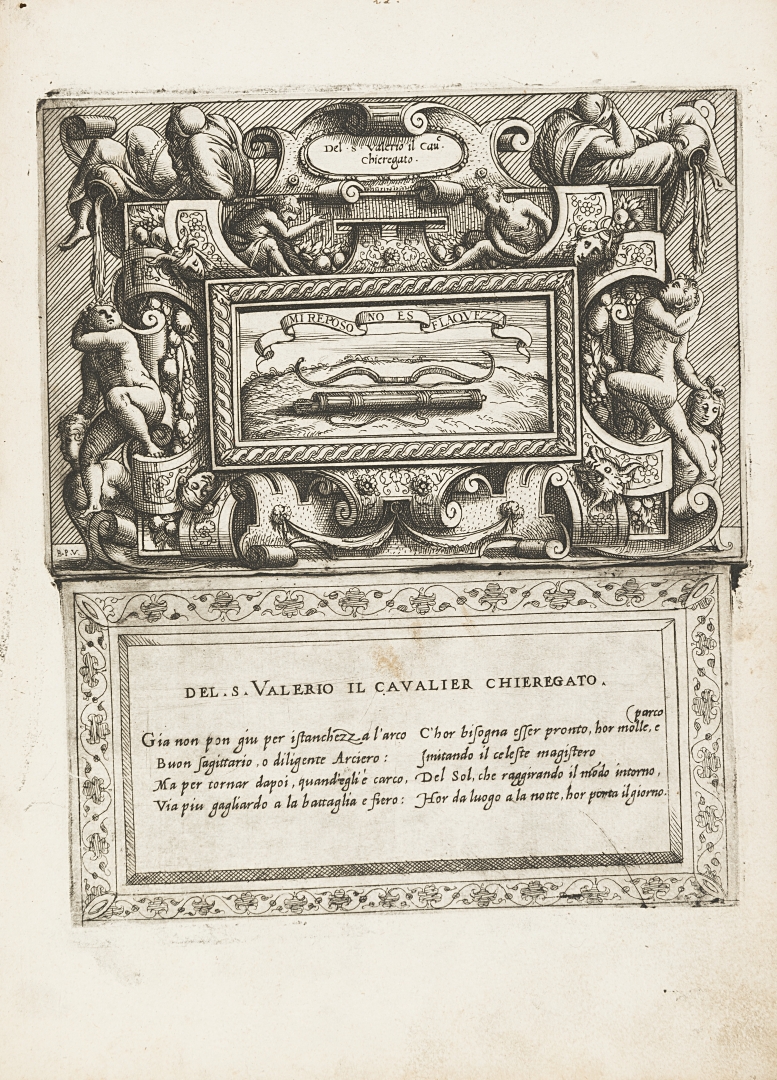 Del . S . Valerio il Cauᵉ.
Chieregato .
MI REPOSO NO ES FLAQVEZZA
B.P.V.
DEL . S . VALERIO IL CAVALIER CHIEREGATO .
Gia non pon giu per istanchezza l'arco
Buon sagittario, o diligente Arciero :
Ma per tornar dapoi, quand'egli è carco,
Via piu gagliardo a la battaglia e fiero :
C'hor bisogna esser pronto, hor molle, e (parco
Imitando il celeste magistero
Del Sol, che raggirando il mōdo intorno,
Hor da luogo a la notte, hor porta il giorno.